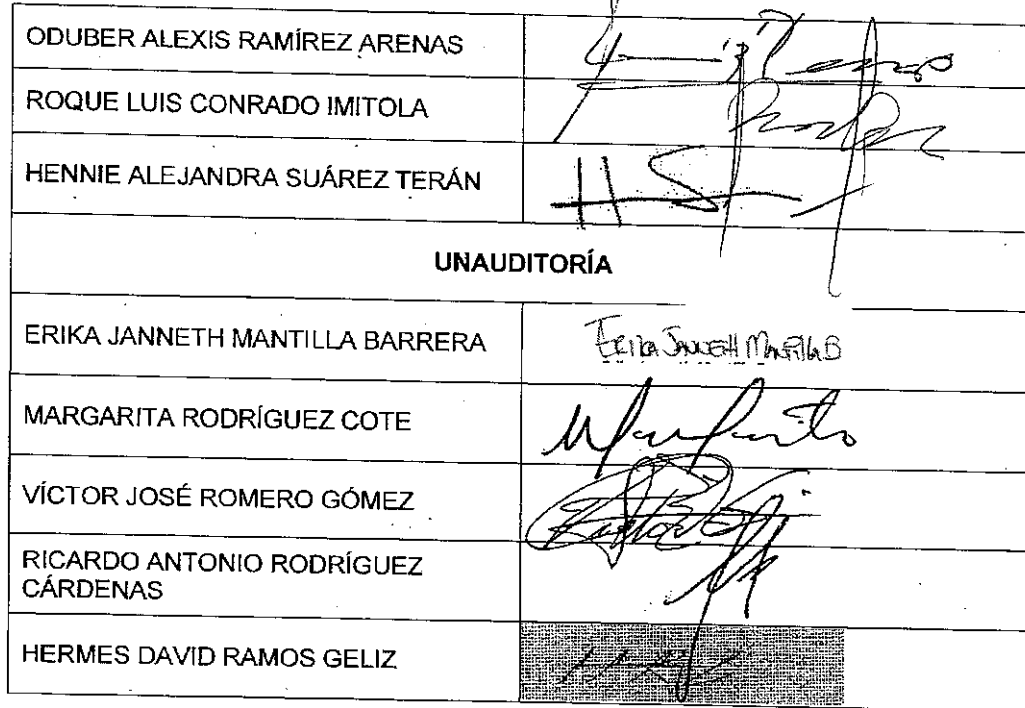 ODUBER ALEXIS RAMÍREZ ARENAS
ROQUE LUIS CONRADO IMITOLA
HENNIE ALEJANDRA SUÁREZ TERÁN
HS
UNAUDITORÍA
ERIKA JANNETH MANTILLA BARRERA
ERIKA JANNETH MANTILLA B
MARGARITA RODRÍGUEZ COTE
Margarita
VÍCTOR JOSÉ ROMERO GÓMEZ
RICARDO ANTONIO RODRÍGUEZ
CÁRDENAS
HERMES DAVID RAMOS GELIZ